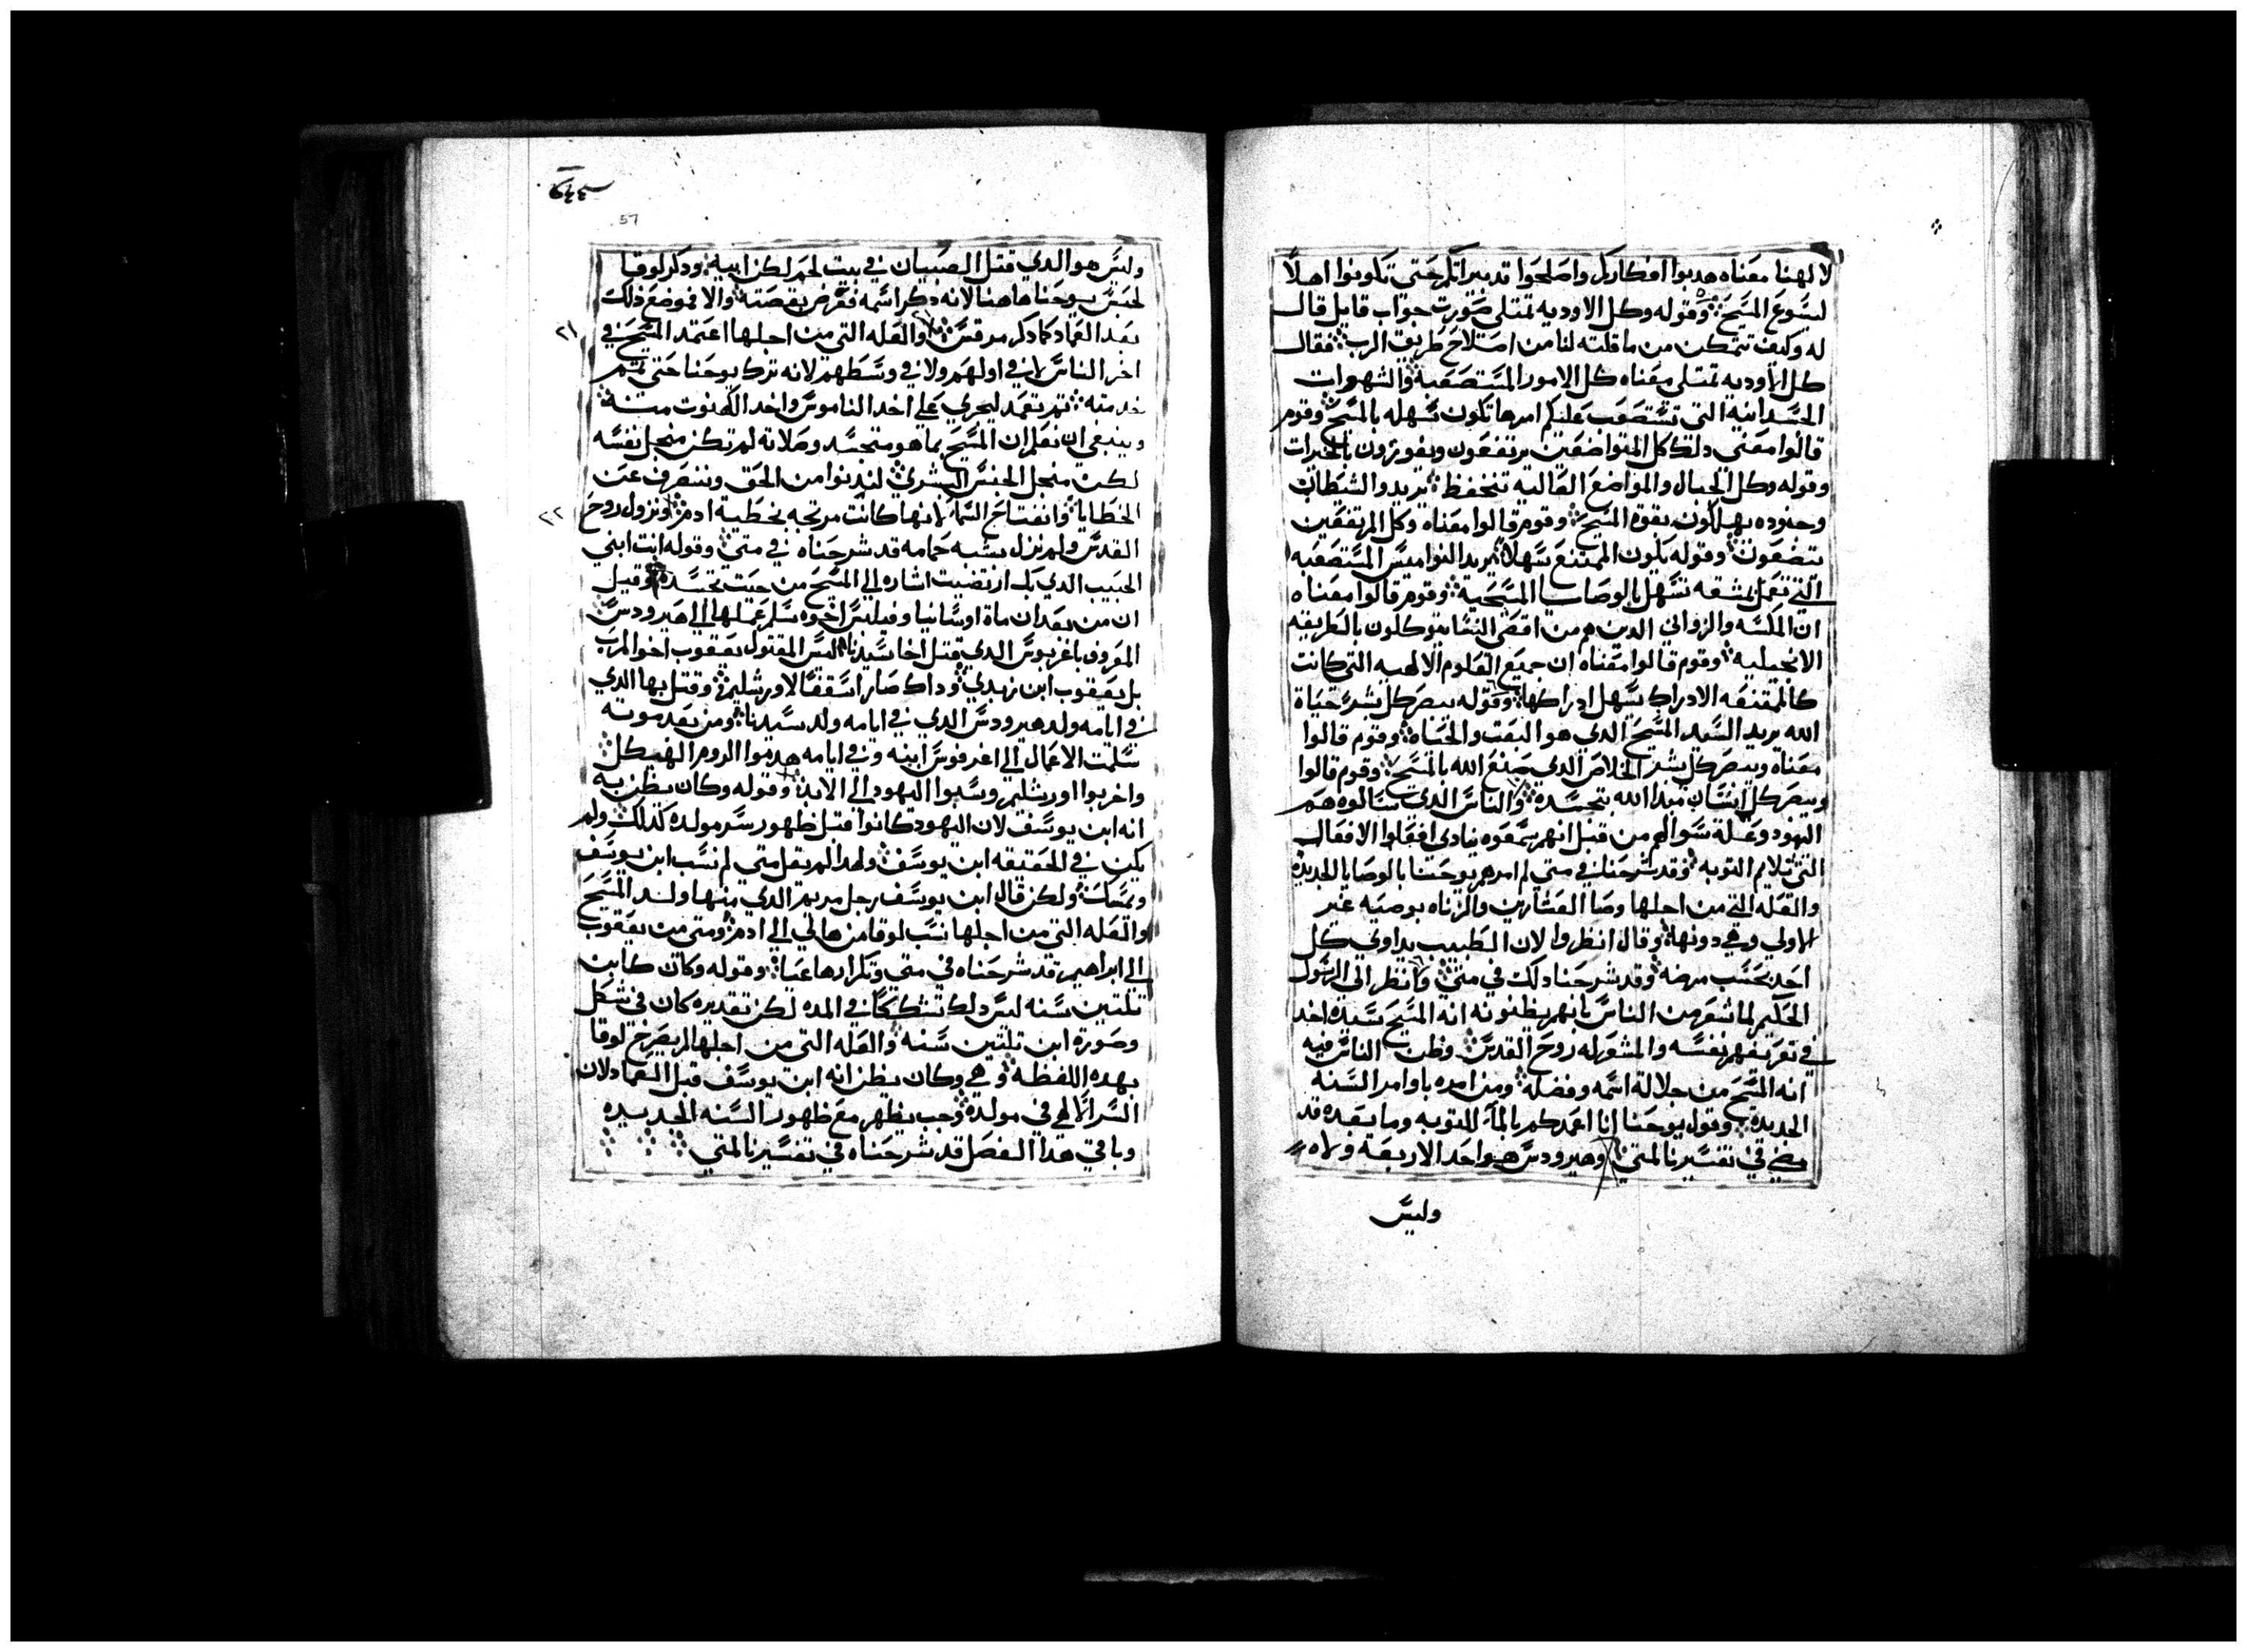 لالهنا معناه هدبوا افكاركم واصلحوا تدبيراتكم حتى تكونوا اهلاً
ليسوع المسيح وقوله وكل الاوديه تمتلي صورت جواب قايل قال
له وكيف نتمكن من ما قلته لنا من اصتلاح طريق الرب فقال
كل الاوديه تمتلي معناه كل الامور المستصعبة والشهوات
الجسدانيه التي تستصعب عليكم امرها تكون سهله بالمسيح وقوم
قالوا معنى دلك كل المتواضعين يرتفعون ويفوزون بالخيرات
وقوله وكل الجبال والمواضع العاليه تنخفظ يريد والشيطان
وجنوده يهلكون بقوة المسيح وقوم قالوا معناه وكل المرتفعين
يتضعون وقوله يكون الممتنع سهلا يريد النواميس المستصعبه
التي تعمل بمشقه تسهل بالوصايا المسيحية وقوم قالوا معناه
ان المكسه والزواني الدين هم من اقصى النقا يتوكلون بالطريقه
الانجيليه وقوم قالوا معناه ان جميع العلوم الالهيه التي كانت
كالممتنعه الادراك سهل ادراكها وقوله يبصر كل بشر حياة
الله يريد السيد المسيح الدي هو البعت والحياه وقوم قالوا
معناه ويبصر كل بشر الخلاص الدي صنع الله بالمسيح وقوم قالوا
ويبصر كل انسان مبدا الله بتجسده والناس الدي سالوه هم
اليهود وعلة سوالهم من قبل انهم سمعوه ينادي افعلوا الافعال
التي تلايم التوبه وقد شرحنا في متي لم امرهم يوحنا بالوصايا الجديده
والعله التي من اجلها وصا العشارين والزناه بوصيه غير
الاولي وهي دونها وقال انظروا لان الطبيب يداوي كل
احد بحسب مرضه وقد شرحنا دلك في متي وانظر الى الرسول
الحكيم لما شعر من الناس بانهم يظنونه انه المسيح سيده اخد
في تعريفهم نفسه والمشور له روح القدس وظن الناس فيه
انه المسيح من جلالة اسمه وفضله ومن امره باوامر السنه
الجديده وقول يوحنا انا اعمدكم بالماء للتوبه وما بعده قد
مضي في تفسيرنا لمتي وهيرودس هو احد الاربعه ولاه
وليس
57
وليس هو الدي قتل الصبيان في بيت لحم لكن ابيه ودكر لوقا
لحبس يوحنا هاهنا لانه دكر اسمه فعرض بقصته والا فموضع ذلك
٢١
بعد العماد كما دكر مرقس والعله التي من اجلها اعتمد المسيح في
اخر الناس لا في اولهم ولا في وسطهم لانه ترك يوحنا حتى يتمم
خدمته تم تعمد ليجري علي اخد الناموس واخد الكهنوت منه
وينبغي ان نعلم ان المسيح بما هو متجسد وصلاته لم تكن منجل نفسه
لكن منجل الجنس البشري لندنوا من الحق وننصرف عن
٢٢
الخطايا وانفتاح السما لانها كانت مرتجه بخطية ادم ونزول روح
القدس ولم نزل بشبه حمامه قد شرحناه في متي وقوله انت ابني
الحبيب الدي بك ارتضيت اشاره الي المسيح من حيت تجسده وقيل
ان من بعد ان ماة اوسانيا وفيلبس اخوه سلم عملها الي هيرودس
المعروف باغربوس الدي قتل اخا سيدنا ليس المقتول يعقوب اخو الرب
بل يعقوب ابن زبدي وداك صار اسقفا لاورشليم وقتل بها الدي
في ايامه ولد هيرودس الدي في ايامه ولد سيدنا ومن بعد موته
سلمت الاعمال الي اغرفوس ابنه وفي ايامه هدموا الروم الهيكل
واخربوا اورشليم وسبوا اليهود الي الابد وقوله وكان يظن به
انه ابن يوسف لان اليهود كانوا قبل ظهور سر مولده كدلك ولم
يكن في الحقيقه ابن يوسف ولهدا لم يقل متي لم نسب ابن يوسف
وتمسك ولكن قال ابن يوسف رجل مريم الدي منها ولد المسيح
والعله التي من اجلها نسب لوقا من هالي الي ادم ومتي من يعقوب
الي ابراهيم قد شرحناه في متي وتكرارها عيا وقوله وكان كابن
تلتين سنه ليس دلك تشككا في المده لكن تقديره كان في شكل
وصورة ابن تلتين سنه والعله التي من اجلها لم يصرح لوقا
بهده اللفظه وهي وكان يظن انه ابن يوسف قبل العماد لان
السر الالهي في مولده وجب يظهر مع ظهور السنه الجديده
وباقي هدا الفصل قد شرحناه في تفسيرنا لمتي